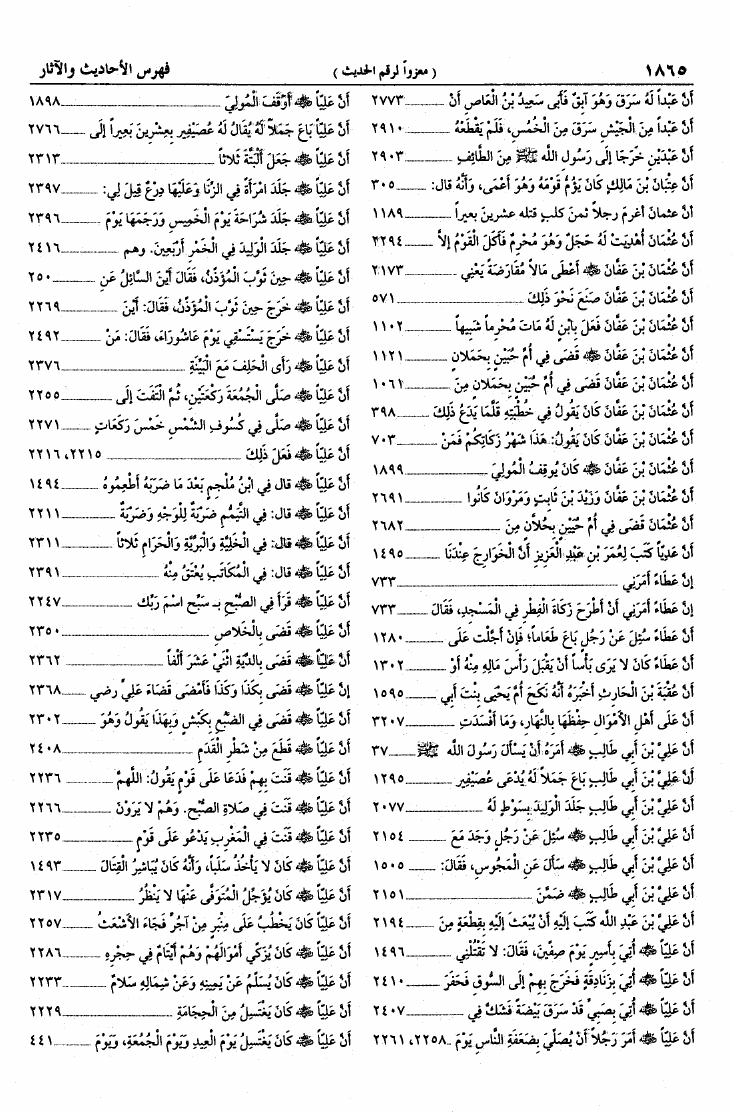 ١٨٦٥
( معزواً لرقم الحديث )
فهرس الأحاديث والآثار
أَنَّ عَبْداً لَهُ سَرَقَ وَهُوَ آبِقٌ فَأَبَى سَعِيدُ بْنُ الْعَاصِ أَنْ ٢٧٧٣
أَنَّ عَبْداً مِنَ الْجَيْشِ سَرَقَ مِنَ الْخُمُسِ، فَلَمْ يَقْطَعْهُ ٢٩١٠
أَنَّ عَبْدَيْنِ خَرَجَا إِلَى رَسُولِ اللَّهِ ﷺ مِنَ الطَّائِفِ ٢٩٠٣
أَنَّ عِتْبَانَ بْنَ مَالِكٍ كَانَ يَؤُمُّ قَوْمَهُ وَهُوَ أَعْمَى، وَأَنَّهُ قال: ٣٠٥
أنَّ عثمانَ أغرمَ رجلاً ثمنَ كلبٍ قتله عشرينَ بعيراً ١١٨٩
أَنَّ عُثْمَانَ أُهْدِيَتْ لَهُ حَجَلٌ وَهُوَ مُحْرِمٌ فَأَكَلَ الْقَوْمُ إِلاَّ ٢٢٩٤
أَنَّ عُثْمَانَ بْنَ عَفَّانَ رضي الله عنه أَعْطَى مَالاً مُقَارَضَةً يَعْنِي ٢١٧٣
أَنَّ عُثْمَانَ بْنَ عَفَّانَ صَنَعَ نَحْوَ ذَلِكَ ٥٧١
أَنَّ عُثْمَانَ بْنَ عَفَّانَ فَعَلَ بِابْنٍ لَهُ مَاتَ مُحْرِماً شَبِيهاً ١١٠٢
أَنَّ عُثْمَانَ بْنَ عَفَّانَ رضي الله عنه قَضَى فِي أُمِّ حُبَيْنٍ بِحَمَلانٍ ١١٢١
أَنَّ عُثْمَانَ بْنَ عَفَّانَ قَضَى فِي أُمِّ حُبَيْنٍ بِحَمَلانٍ مِنَ ١٠٦١
أَنَّ عُثْمَانَ بْنَ عَفَّانَ كَانَ يَقُولُ فِي خُطْبَتِهِ قَلَّمَا يَدَعُ ذَلِكَ ٣٩٨
أَنَّ عُثْمَانَ بْنَ عَفَّانَ كَانَ يَقُولُ: هَذَا شَهْرُ زَكَاتِكُمْ فَمَنْ ٧٠٣
أَنَّ عُثْمَانَ بْنَ عَفَّانَ رضي الله عنه كَانَ يُوقِفُ الْمُولِيَ ١٨٩٩
أَنَّ عُثْمَانَ بْنَ عَفَّانَ وَزَيْدَ بْنَ ثَابِتٍ وَمَرْوَانَ كَانُوا ٢٦٩١
أَنَّ عُثْمَانَ قَضَى فِي أُمِّ حُبَيْنٍ بِحُلاَّنٍ مِنَ ٢٦٨٢
أَنَّ عَدِيّاً كَتَبَ لِعُمَرَ بْنِ عَبْدِ الْعَزِيزِ أَنَّ الْخَوَارِجَ عِنْدَنَا ١٤٩٥
إنَّ عَطَاءً أَمَرَنِي ٧٣٣
إِنَّ عَطَاءً أَمَرَنِي أَنْ أَطْرَحَ زَكَاةَ الْفِطْرِ فِي الْمَسْجِدِ، فَقَالَ ٧٣٣
أَنَّ عَطَاءً سُئِلَ عَنْ رَجُلٍ بَاعَ طَعَاماً؛ فَإِنْ أَجَّلْتَ عَلَى ١٢٨٠
أَنَّ عَطَاءً كَانَ لا يَرَى بَأْساً أَنْ يَقْبَلَ رَأْسَ مَالِهِ مِنْهُ أَوْ ١٣٠٢
أَنَّ عُقْبَةَ بْنَ الْحَارِثِ أَخْبَرَهُ أَنَّهُ نَكَحَ أُمَّ يَحْيَى بِنْتَ أَبِي ١٥٩٥
أَنَّ عَلَى أَهْلِ الأَمْوَالِ حِفْظَهَا بِالنَّهَارِ، وَمَا أَفْسَدَتِ ٣٢٠٧
أَنَّ عَلِيَّ بْنَ أَبِي طَالِبٍ رضي الله عنه أَمَرَهُ أَنْ يَسْأَلَ رَسُولَ اللَّهِ ﷺ ٣٧
أَنَّ عَلِيَّ بْنَ أَبِي طَالِبٍ بَاعَ جَمَلاً لَهُ يُدْعَى عُصَيْفِيرَ ١٢٩٥
أَنَّ عَلِيَّ بْنَ أَبِي طَالِبٍ جَلَدَ الْوَلِيدَ بِسَوْطٍ لَهُ ٢٠٧٧
أَنَّ عَلِيَّ بْنَ أَبِي طَالِبٍ رضي الله عنه سُئِلَ عَنْ رَجُلٍ وَجَدَ مَعَ ٢١٥٤
أَنَّ عَلِيَّ بْنَ أَبِي طَالِبٍ رضي الله عنه سَأَلَ عَنِ الْمَجُوسِ، فَقَالَ: ١٥٠٥
أَنَّ عَلِيَّ بْنَ أَبِي طَالِبٍ رضي الله عنه ضَمَّنَ ٢١٥١
أَنَّ عَلِيَّ بْنَ عَبْدِ اللَّهِ كَتَبَ إِلَيْهِ أَنْ يُبْعَثَ إِلَيْهِ بِقِطْعَةٍ مِنَ ٢١٩٤
أَنَّ عَلِيّاً رضي الله عنه أُتِيَ بِأَسِيرٍ يَوْمَ صِفِّينَ، فَقَالَ: لا تَقْتُلْنِي ١٤٩٦
أَنَّ عَلِيّاً رضي الله عنه أُتِيَ بِزَنَادِقَةٍ فَخَرَجَ بِهِمْ إِلَى السُّوقِ فَحَفَرَ ٢٤١٠
أَنَّ عَلِيّاً رضي الله عنه أُتِيَ بِصَبِيٍّ قَدْ سَرَقَ بَيْضَةً فَشَكَّ فِي ٢٤٠٧
أَنَّ عَلِيّاً رضي الله عنه أَمَرَ رَجُلاً أَنْ يُصَلِّيَ بِضَعَفَةِ النَّاسِ يَوْمَ ٢٢٥٨، ٢٢٦١
أَنَّ عَلِيّاً رضي الله عنه أَوْقَفَ الْمُولِيَ ١٨٩٨
أَنَّ عَلِيّاً بَاعَ جَمَلاً لَهُ يُقَالُ لَهُ عُصَيْفِير بِعِشْرِينَ بَعِيراً إِلَى ٢٧٦٦
أَنَّ عَلِيّاً رضي الله عنه جَعَلَ أَلْبَتَّةَ ثَلاثاً ٢٣١٣
أَنَّ عَلِيّاً رضي الله عنه جَلَدَ امْرَأَةً فِي الزِّنَا وَعَلَيْهَا دِرْعٌ قِيلَ لِي: ٢٣٩٧
أَنَّ عَلِيّاً رضي الله عنه جَلَدَ شُرَاحَةَ يَوْمَ الْخَمِيسِ وَرَجَمَهَا يَوْمَ ٢٣٩٦
أَنَّ عَلِيّاً رضي الله عنه جَلَدَ الْوَلِيدَ فِي الْخَمْرِ أَرْبَعِينَ. وهم ٢٤١٦
أَنَّ عَلِيّاً رضي الله عنه حِينَ ثَوَّبَ الْمُؤَذِّنُ، فَقَالَ أَيْنَ السَّائِلُ عَنِ ٢٥٠
أَنَّ عَلِيّاً رضي الله عنه خَرَجَ حِينَ ثَوَّبَ الْمُؤَذِّنُ، فَقَالَ: أَيْنَ ٢٢٦٩
أَنَّ عَلِيّاً رضي الله عنه خَرَجَ يَسْتَسْقِي يَوْمَ عَاشُورَاءَ، فَقَالَ: مَنْ ٢٤٩٢
أَنَّ عَلِيّاً رضي الله عنه رَأَى الْحَلِفَ مَعَ الْبَيِّنَةِ ٢٣٧٦
أَنَّ عَلِيّاً رضي الله عنه صَلَّى الْجُمُعَةَ رَكْعَتَيْنِ، ثُمَّ الْتَفَتَ إِلَى ٢٢٥٥
أَنَّ عَلِيّاً رضي الله عنه صَلَّى فِي كُسُوفِ الشَّمْسِ خَمْسَ رَكَعَاتٍ ٢٢٧١
أَنَّ عَلِيّاً رضي الله عنه فَعَلَ ذَلِكَ ٢٢١٥، ٢٢١٦
أَنَّ عَلِيّاً رضي الله عنه قال فِي ابْنُ مُلْجِمٍ بَعْدَ مَا ضَرَبَهُ أَطْعِمُوهُ ١٤٩٤
أَنَّ عَلِيّاً رضي الله عنه قال: فِي التَّيَمُّمِ ضَرْبَةٌ لِلْوَجْهِ وَضَرْبَةٌ ٢٢١١
أَنَّ عَلِيّاً رضي الله عنه قال: فِي الْخَلِيَّةِ وَالْبَرِيَّةِ وَالْحَرَامِ ثَلاثاً ٢٣١١
أَنَّ عَلِيّاً رضي الله عنه قال: فِي الْمُكَاتَبِ يُعْتَقُ مِنْهُ ٢٣٩١
أَنَّ عَلِيّاً رضي الله عنه قَرَأَ فِي الصُّبْحِ بـ سَبِّحِ اسْمَ رَبِّكَ ٢٢٤٧
أَنَّ عَلِيّاً رضي الله عنه قَضَى بِالْخَلاصِ ٢٣٥٠
أَنَّ عَلِيّاً رضي الله عنه قَضَى بِالدِّيَةِ اثْنَيْ عَشَرَ أَلْفاً ٢٣٦٢
إنَّ عَلِيّاً رضي الله عنه قَضَى بِكَذَا وَكَذَا فَأَمْضَى قَضَاءَ عَلِيٍّ رضي ٢٣٦٨
أَنَّ عَلِيّاً رضي الله عنه قَضَى فِي الضَّبُعِ بِكَبْشٍ وَبِهَذَا يَقُولُ وَهُوَ ٢٣٠٢
أَنَّ عَلِيّاً رضي الله عنه قَطَعَ مِنْ شَطْرِ الْقَدَمِ ٢٤٠٨
أَنَّ عَلِيّاً رضي الله عنه قَنَتَ بِهِمْ فَدَعَا عَلَى قَوْمٍ يَقُولُ: اللَّهمَّ ٢٢٣٦
أَنَّ عَلِيّاً رضي الله عنه قَنَتَ فِي صَلاةِ الصُّبْحِ. وَهُمْ لا يَرَوْنَ ٢٢٦٦
أَنَّ عَلِيّاً رضي الله عنه قَنَتَ فِي الْمَغْرِبِ يَدْعُو عَلَى قَوْمٍ ٢٢٣٥
أَنَّ عَلِيّاً رضي الله عنه كَانَ لا يَأْخُذُ سَلَباً، وَأَنَّهُ كَانَ يُبَاشِرُ الْقِتَالَ ١٤٩٣
أَنَّ عَلِيّاً رضي الله عنه كَانَ يُؤَجِّلُ الْمُتَوَفَّى عَنْهَا لا يَنْظُرُ ٢٣١٧
أَنَّ عَلِيّاً كَانَ يَخْطُبُ عَلَى مِنْبَرٍ مِنْ آجُرٍّ فَجَاءَ الأَشْعَثُ ٢٢٥٧
أَنَّ عَلِيّاً رضي الله عنه كَانَ يُزَكِّي أَمْوَالَهُمْ وَهُمْ أَيْتَامٌ فِي حِجْرِهِ ٢٢٨٦
أَنَّ عَلِيّاً رضي الله عنه كَانَ يُسَلِّمُ عَنْ يَمِينِهِ وَعَنْ شِمَالِهِ سَلامٌ ٢٢٣٣
أَنَّ عَلِيّاً رضي الله عنه كَانَ يَغْتَسِلُ مِنَ الْحِجَامَةِ ٢٢٢٩
أَنَّ عَلِيّاً رضي الله عنه كَانَ يَغْتَسِلُ يَوْمَ الْعِيدِ وَيَوْمَ الْجُمُعَةِ، وَيَوْمَ ٤٤١